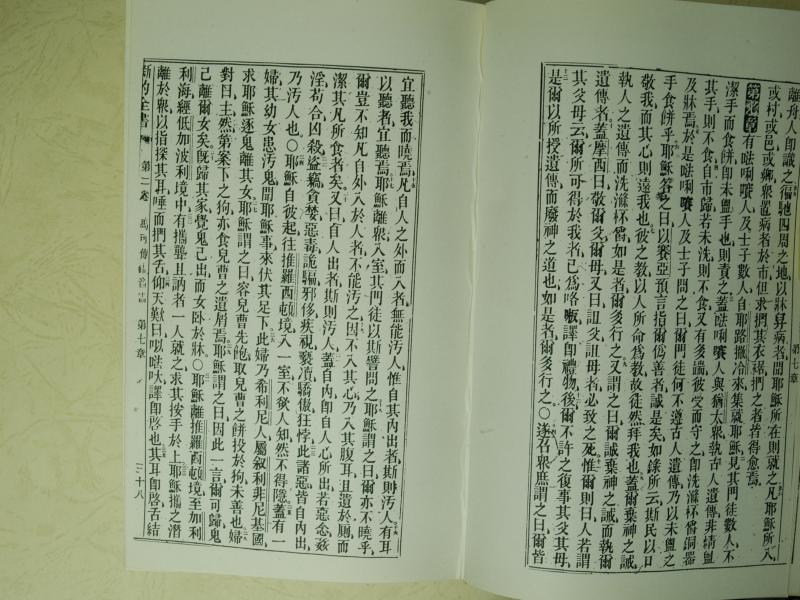 離舟人卽識之徧馳四周之地以牀舁病者聞耶穌所在則就之凡耶穌所入
或村或邑或鄉衆置病者於市但求捫其衣裾捫之者皆得愈焉
第七章 有㗭唎㘔人及士子數人自耶路撒冷來集就耶穌見其門徒數人不
潔手而食餅卽未盥手也則責之蓋㗭唎㘔人與猶太衆執古人遺傳非精盥
其手則不食自市歸若未洗則不食又有多端彼受而守之卽洗滌杯觴銅器
及牀焉於是㗭唎㘔人及士子問之曰爾門徒何不遵古人遺傳乃以未盥之
手食餅乎耶穌答之曰以賽亞預言指爾僞善者誠是矣如錄所云斯民以口
敬我而其心則遠我也彼之教以人所命爲教故徒然拜我也蓋爾棄神之誡而執
人之遺傳而洗滌杯觴如是者爾多行之又謂之曰爾誠棄神之誡而執爾
遺傳者蓋摩西曰敬爾父爾母又曰詛父詛母者必致之死惟爾則曰人若謂
其父母云爾所可得於我者已爲咯𠸄譯卽禮物後爾不許之復事其父其母
是爾以所授遺傳而廢神之道也如是者爾多行之○遂召衆庶謂之曰爾皆
第七章
宜聽我而曉焉凡自人之外而入者無能汚人惟自其內出者斯則汚人有耳
以聽者宜聽焉耶穌離衆入室其門徒以斯譬問之耶穌謂之曰爾亦不曉乎
爾豈不知凡自外入於人者不能汚之因不入其心乃入其腹耳且遺於廁而
潔其凡所食者矣又曰自人出者斯則汚人蓋自內卽自人心所出若惡念姦
淫苟合凶殺盜竊貪婪惡毒詭騙邪侈疾視褻凟驕傲狂悖此諸惡皆自內出
乃汚人也○耶穌自彼起往推羅西頓境入一室不欲人知然不得隱蓋有一
婦其幼女患汚鬼聞耶穌事來伏其足下此婦乃希利尼人屬叙利非尼基國
求耶穌逐鬼離其女耶穌謂之曰容兒曹先飽取兒曹之餅投於狗未善也婦
對曰主然第案下之狗亦食兒曹之遺屑焉耶穌謂之曰因此一言爾可歸鬼
己離爾女矣旣歸其家覺鬼己出而女卧於牀○耶穌離推羅西頓境至加利
利海經低加波利境中有攜聾且訥者一人就之求其按手於上耶穌攜之潛
離於衆以指探其耳唾而捫其舌仰天歎曰以㕸㕭譯卽啓也其耳卽啓舌結
新約全書 第二卷 馬可傳福音書 第七章 三十八